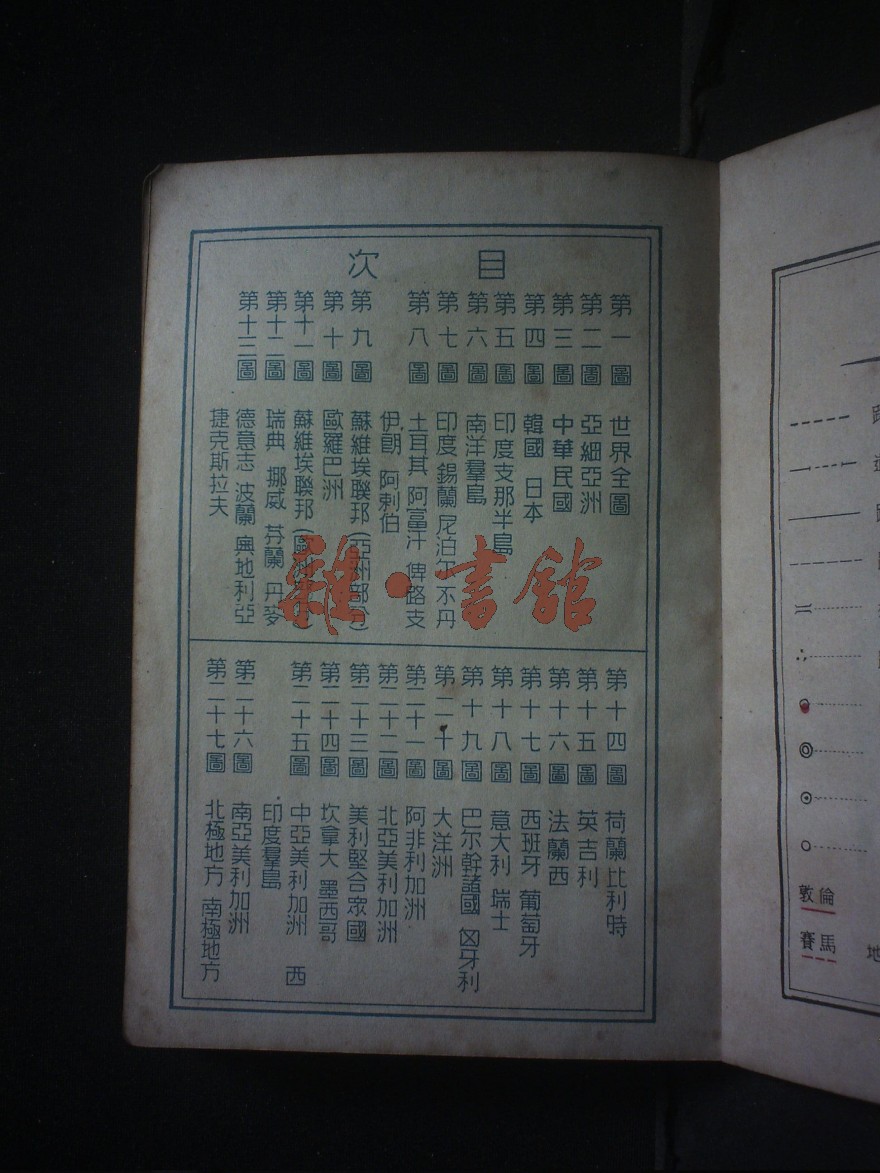 目 次
第一圖 世界全圖
第二圖 亞細亞洲
第三圖 中華民國
第四圖 韓國 日本
第五圖 印度支那半島
第六圖 南洋羣島
第七圖 印度 錫蘭 尼泊尔 不丹
第八圖 土耳其 阿富汗 俾路支
伊朗 阿剌伯
第九圖 蘇維埃聯邦(亞洲部分)
第十圖 歐羅巴洲
第十一圖 蘇維埃聯邦(歐洲部分)
第十二圖 瑞典 挪威 芬蘭 丹麥
第十三圖 德意志 波蘭 奥地利亞
捷克斯拉夫
第十四圖 荷蘭 比利時
第十五圖 英吉利
第十六圖 法蘭西
第十七圖 西班牙 葡萄牙
第十八圖 意大利 瑞士
第十九圖 巴尔幹諸國 匈牙利
第二十圖 大洋洲
第二十一圖 阿非利加洲
第二十二圖 北亞美利加洲
第二十三圖 美利堅合衆國
第二十四圖 坎拿大 墨西哥
第二十五圖 中亞美利加洲 西
印度羣島
第二十六圖 南亞美利加洲
第二十七圖 北極地方 南極地方
雜·書館
倫敦
馬賽
地